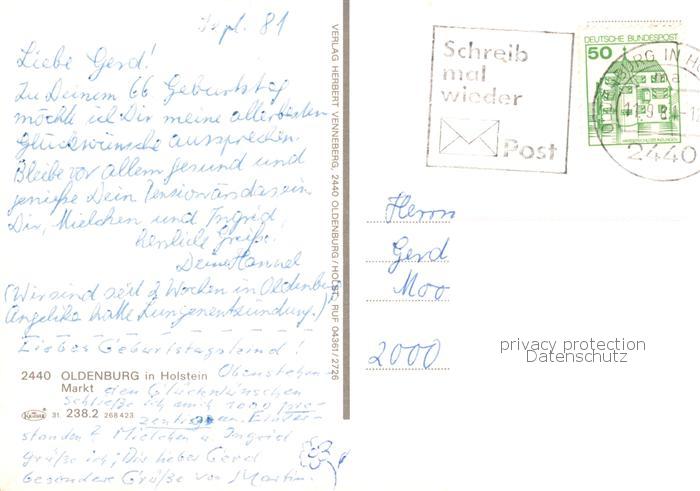 Sept. 81
Liebe Gerd!
Zu Deinem 66 Geburtstag
möchte ich Dir meine allerbesten
Glückwünsche aussprechen.
Bleibe vor allem gesund und
genieße Dein Pensionärsdasein.
Dir, Mielchen und Ingrid,
herzliche Grüße.
Deine Hannel
(Wir sind seit 2 Wochen in Oldenburg,
Angelika hatte Lungenentzündung.)
Liebes Geburtstagskind!
Obenstehen-
den Glückwünschen
schließe ich mich 1000 pro-
zentig an. Einver-
standen? Mielchen u. Ingrid
grüße ich; Dir lieber Gerd
besondere Grüße von Martin.
2440 OLDENBURG in Holstein
Markt
KRÜGER 31. 238.2 268 423
VERLAG HERBERT VENNEBERG, 2440 OLDENBURG/HOLST., RUF 04361/2726
Schreib
mal
wieder
Post
DEUTSCHE BUNDESPOST
50
OLDENBURG IN HO
ma
11.9.81-1
2440
Herrn
Gerd
Moo
2000
privacy protection
Datenschutz